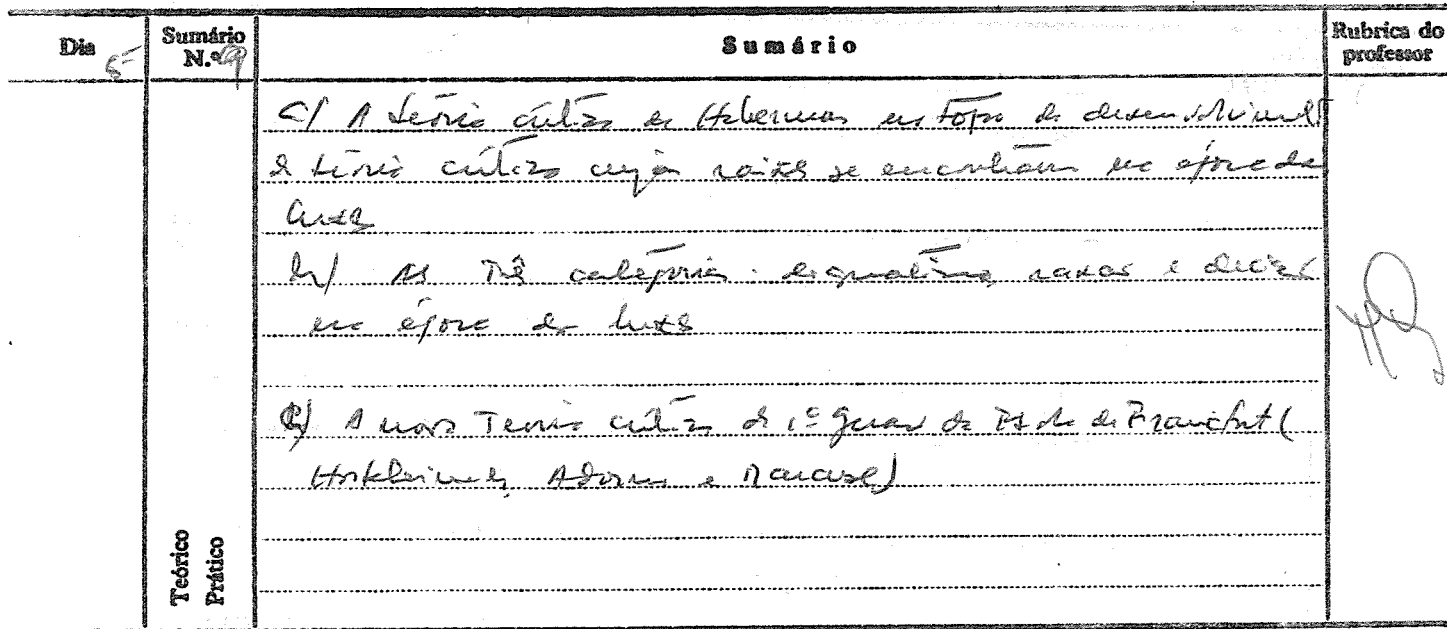 Dia 5
Sumário N.º
Sumário
Rubrica do professor
A teoria crítica de Habermas
teoria crítica cujas raízes se encontram na época das
luzes
b) As três categorias: dogmatismo, razão e decisão
na época das luzes
c) A nova Teoria crítica da 1ª geração da Escola de Francfurt (
Horkheimer, Adorno e Marcuse)
Teórico
Prático